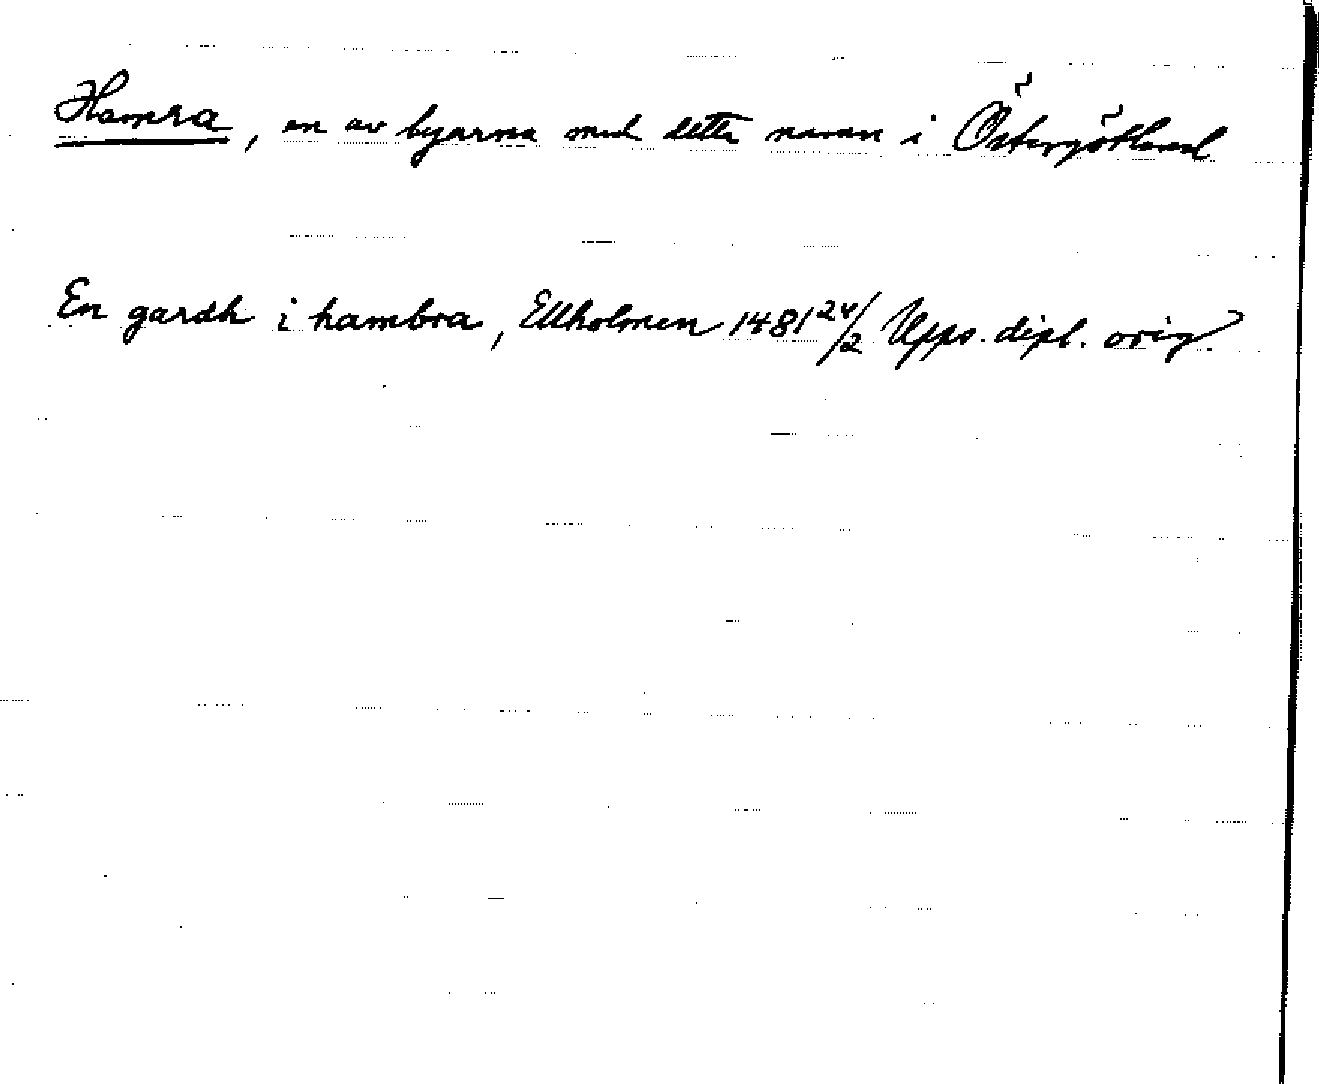 Hamra, en av byarna med detta namn i Östergötland
En gardh i hambra, Ellholmen 1481 24/2 Upps. dipl. orig.